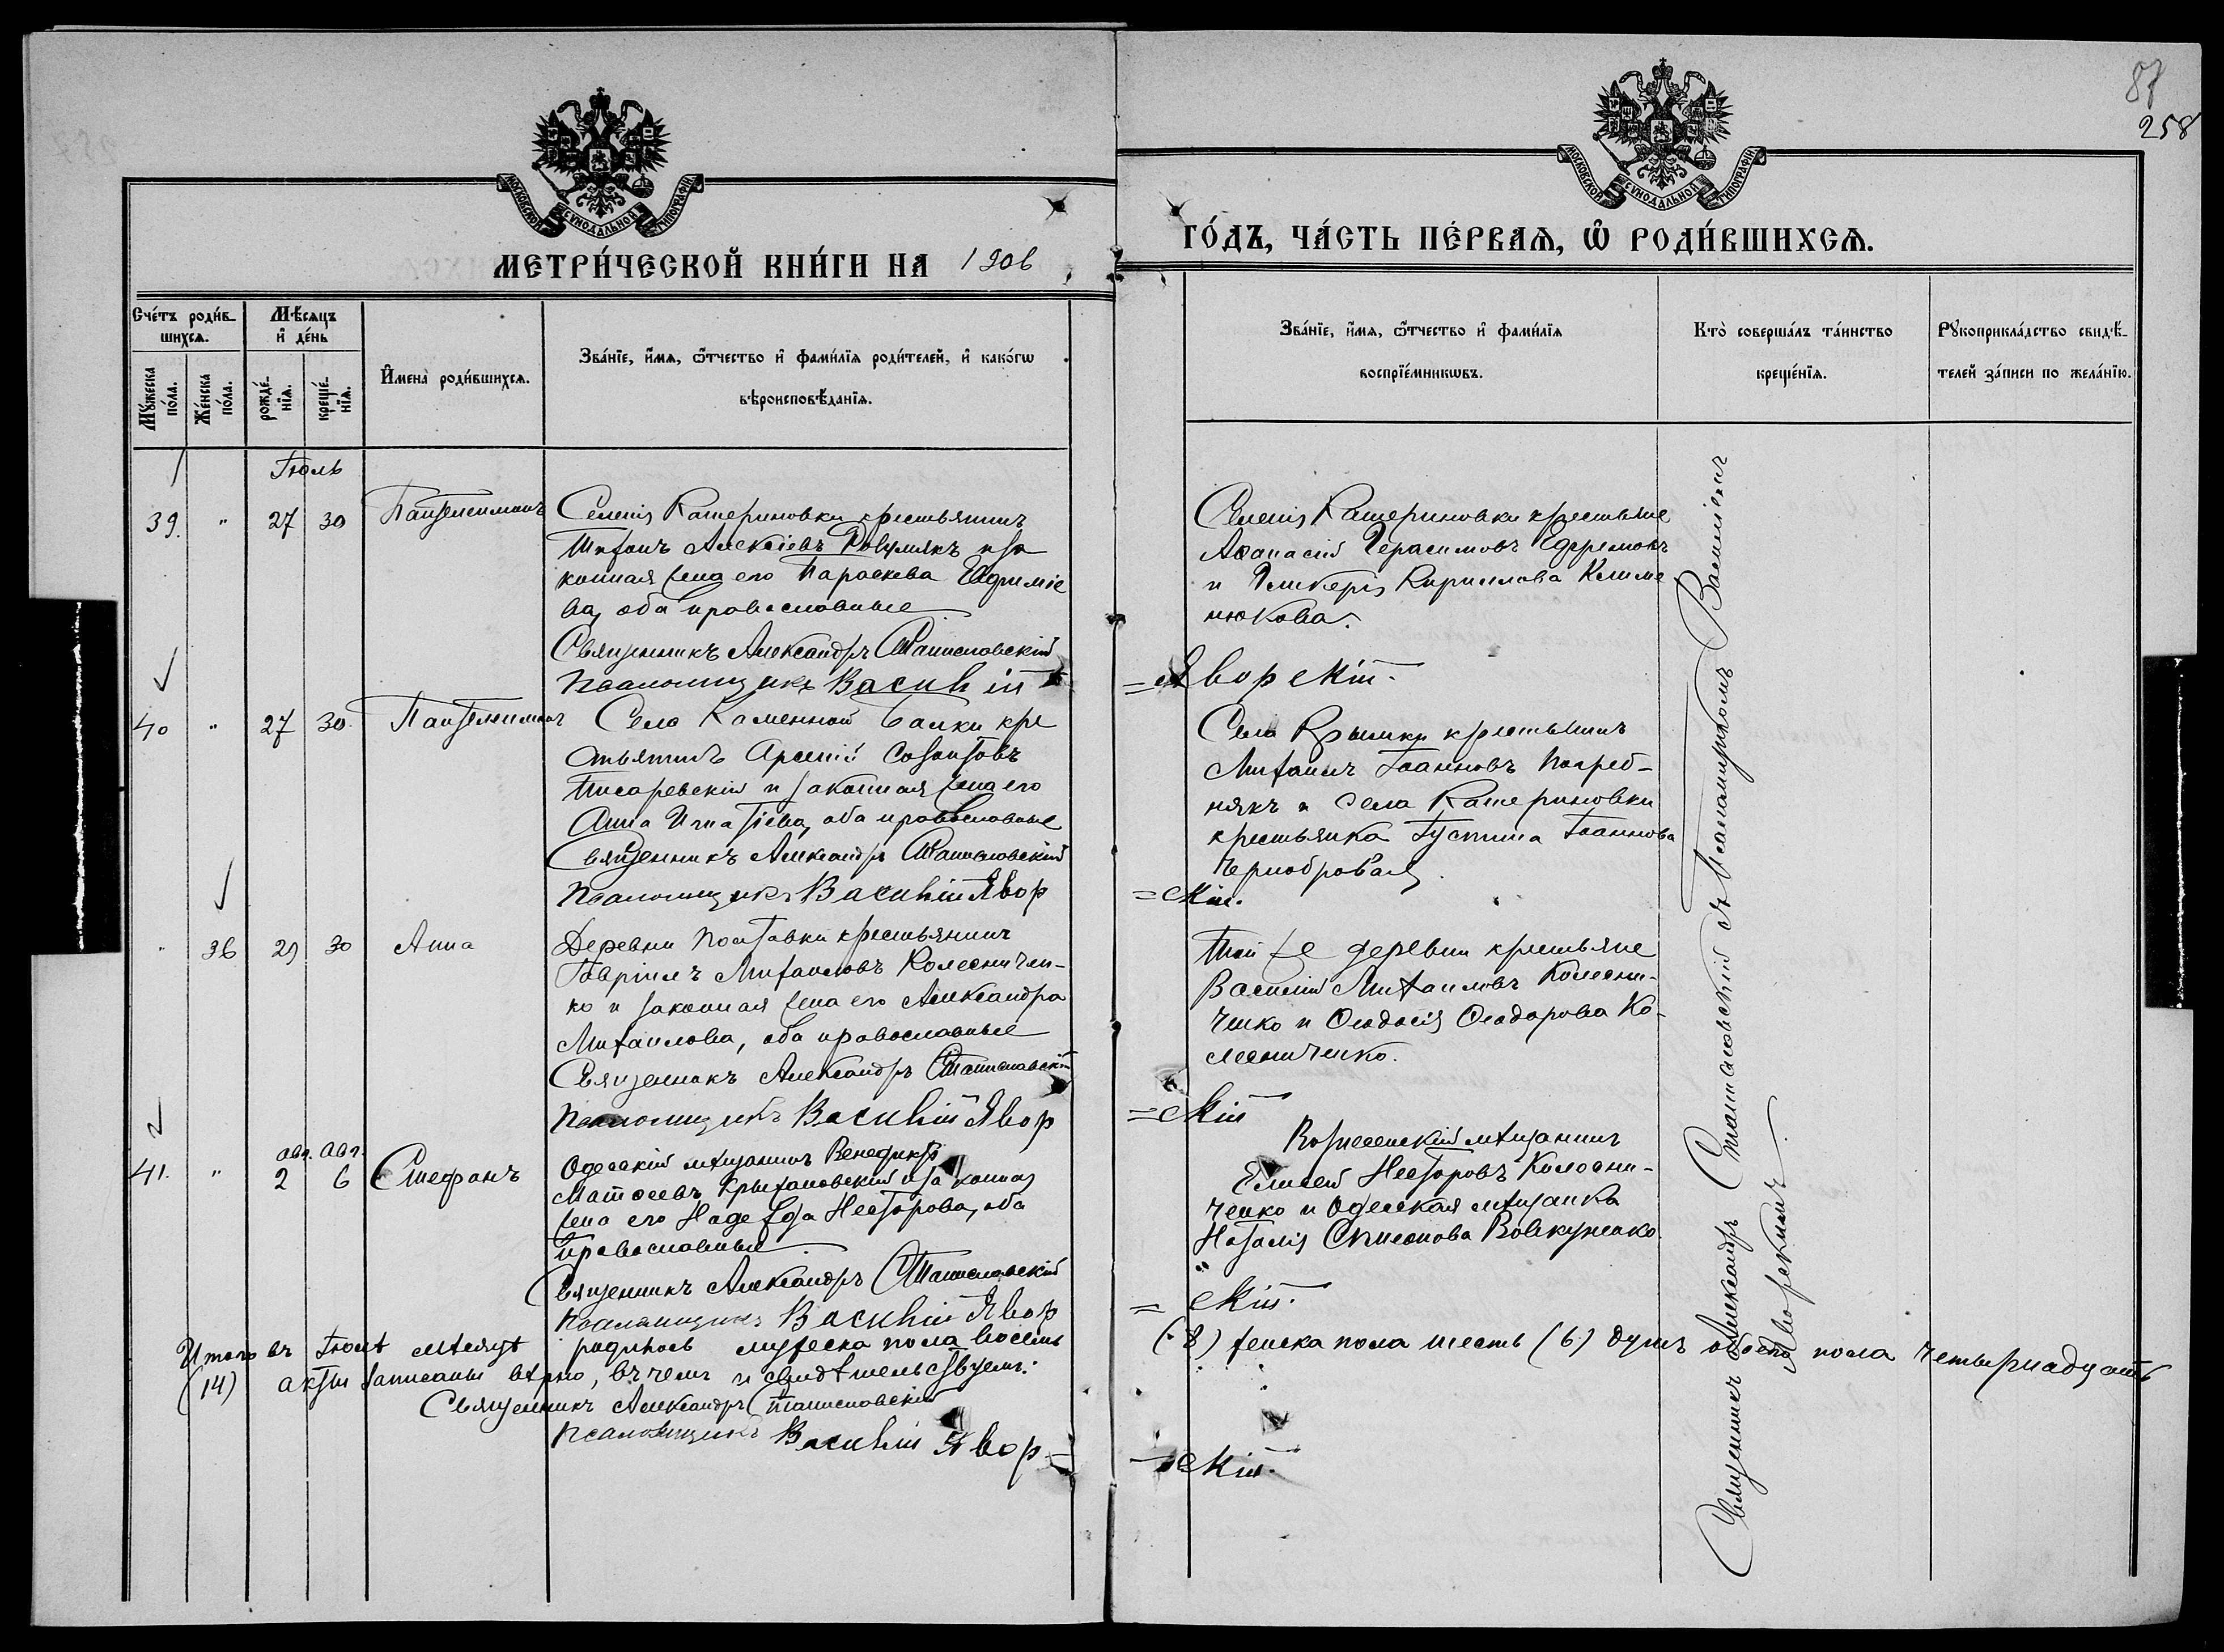 87
258
МОСКОВСКОЙ СѴНОДАЛЬНОЙ ТИПОГРАФІИ
МОСКОВСКОЙ СѴНОДАЛЬНОЙ ТИПОГРАФІИ
МЕТРИ́ЧЕСКОЙ КНИ́ГИ НА 1906
ГО́ДЪ, ЧА́СТЬ ПЕ́РВАѦ, Ѡ҆ РОДИ́ВШИХСѦ.
Сче́тъ роди́в-
шихсѧ.
Мꙋ́жеска
по́ла.
Же́нска
по́ла.
Мѣ́сѧцъ
и҆ де́нь
рожде́-
нїѧ.
креще́-
нїѧ.
И҆мена̀ роди́вшихсѧ.
Зва́нїе, и҆́мѧ, ѻ҆́тчество и҆ фами́лїѧ роди́телей, и҆ како́гѡ
вѣроисповѣ́данїѧ.
Зва́нїе, и҆́мѧ, ѻ҆́тчество и҆ фами́лїѧ
воспрїе́мникѡвъ.
Кто̀ соверша́лъ та́инство
креще́нїѧ.
Рꙋкоприкла́дство свидѣ́-
телей за́писи по жела́нїю.
Іюль
39. " 27 30 Пантелеимонъ
Селенія Катериновки крестьянинъ
Алексіевъ и за
конная жена его Параскева Евфиміе
ва, оба православные
Священникъ Александръ Станиславскій
Псаломщикъ Василій
Селенія Катериновки крестьяне
Аѳанасій Герасимовъ Ефремовъ
и Гликерія Кириллова Климе
нюкова.
=Яворскій.
40 " 27 30. Пантелеимонъ
Села Каменной Балки кре
стьянинъ Арсеній Созонтовъ
Писаревскій и законная жена его
Анна Игнатіева, оба православные
Священникъ Александръ Станиславскій
Псаломщикъ Василій Явор
Села Крымки крестьянинъ
Михаилъ Іоанновъ Погреб-
някъ и села Катериновки
крестьянка Іустина Іоаннова
Чернобровая.
=скій.
" 36 29 30 Анна
Деревни Полтавки крестьянинъ
Гавріилъ Михаиловъ Колесничен-
ко и законная жена его Александра
Михаилова, оба православные
Священникъ Александръ Станиславскій
Псаломщикъ Василій Явор
Той же деревни крестьяне
Василій Михаиловъ Колесни-
ченко и Ѳеодосія Ѳеодорова Ко-
лесниченко.
=скій
авг. авг.
41. " 2 6 Стефанъ
Одесскій мѣщанинъ Венедиктъ
Матѳеевъ Крыжановскій и законная
жена его Надежда Несторова, оба
православные.
Священникъ Александръ Станиславскій
Псаломщикъ Василій Явор
Вознесенскій мѣщанинъ
Елисей Несторовъ Колесни-
ченко и Одесская мѣщанка
Наталія
= скій.
Священникъ Александръ Станиславскій съ Псаломщикомъ Василіемъ
Яворскимъ.
Итого въ Іюлѣ мѣсяцѣ родилось мужеска пола восемь (8) женска пола шесть (6) душъ обоего пола четырнадцать
(14) акты записаны вѣрно, въ чемъ и свидѣтельствуемъ:
Священникъ Александръ Станиславскій
Псаломщикъ Василій Явор=
=скій.